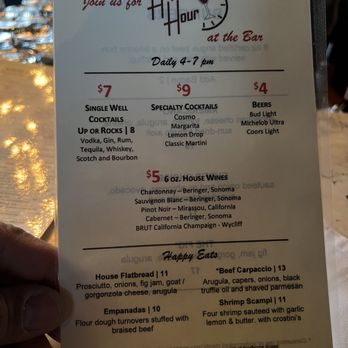 Join us for
Hour
at the Bar
Daily 4-7 pm
$7
Single Well
Cocktails
Up or Rocks | 8
Vodka, Gin, Rum,
Tequila, Whiskey,
Scotch and Bourbon
$9
Specialty Cocktails
Cosmo
Margarita
Lemon Drop
Classic Martini
$4
Beers
Bud Light
Michelob Ultra
Coors Light
$5 6 oz. House Wines
Chardonnay – Beringer, Sonoma
Sauvignon Blanc – Beringer, Sonoma
Pinot Noir – Mirassou, California
Cabernet – Beringer, Sonoma
BRUT California Champaign - Wycliff
Happy Eats
House Flatbread | 11
Prosciutto, onions, fig jam, goat /
gorgonzola cheese, arugula
Empanadas | 10
Flour dough turnovers stuffed with
braised beef
*Beef Carpaccio | 13
Arugula, capers, onions, black
truffle oil and shaved parmesan
Shrimp Scampi | 11
Four shrimp sauteed with garlic
lemon & butter, with crostini's